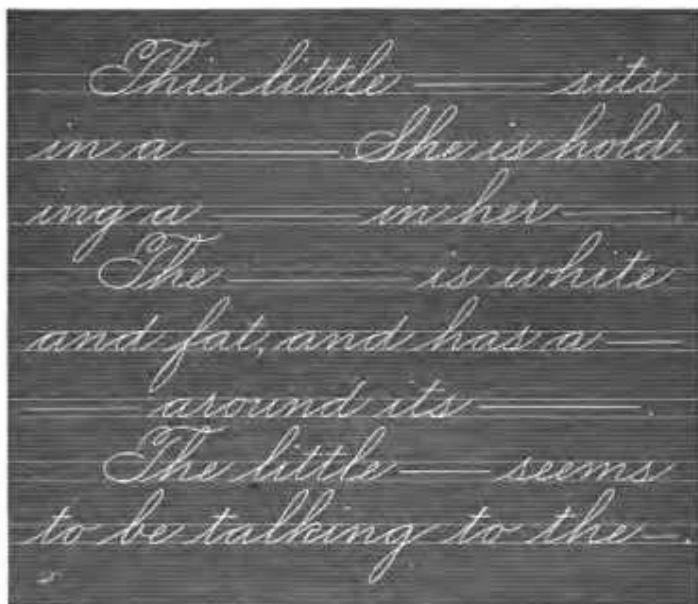 This little ——— sits
in a ———. She is hold
ing a ——— in her ———.
The ——— is white
and fat, and has a ——
——— around its ———.
The little ——— seems
to be talking to the —.